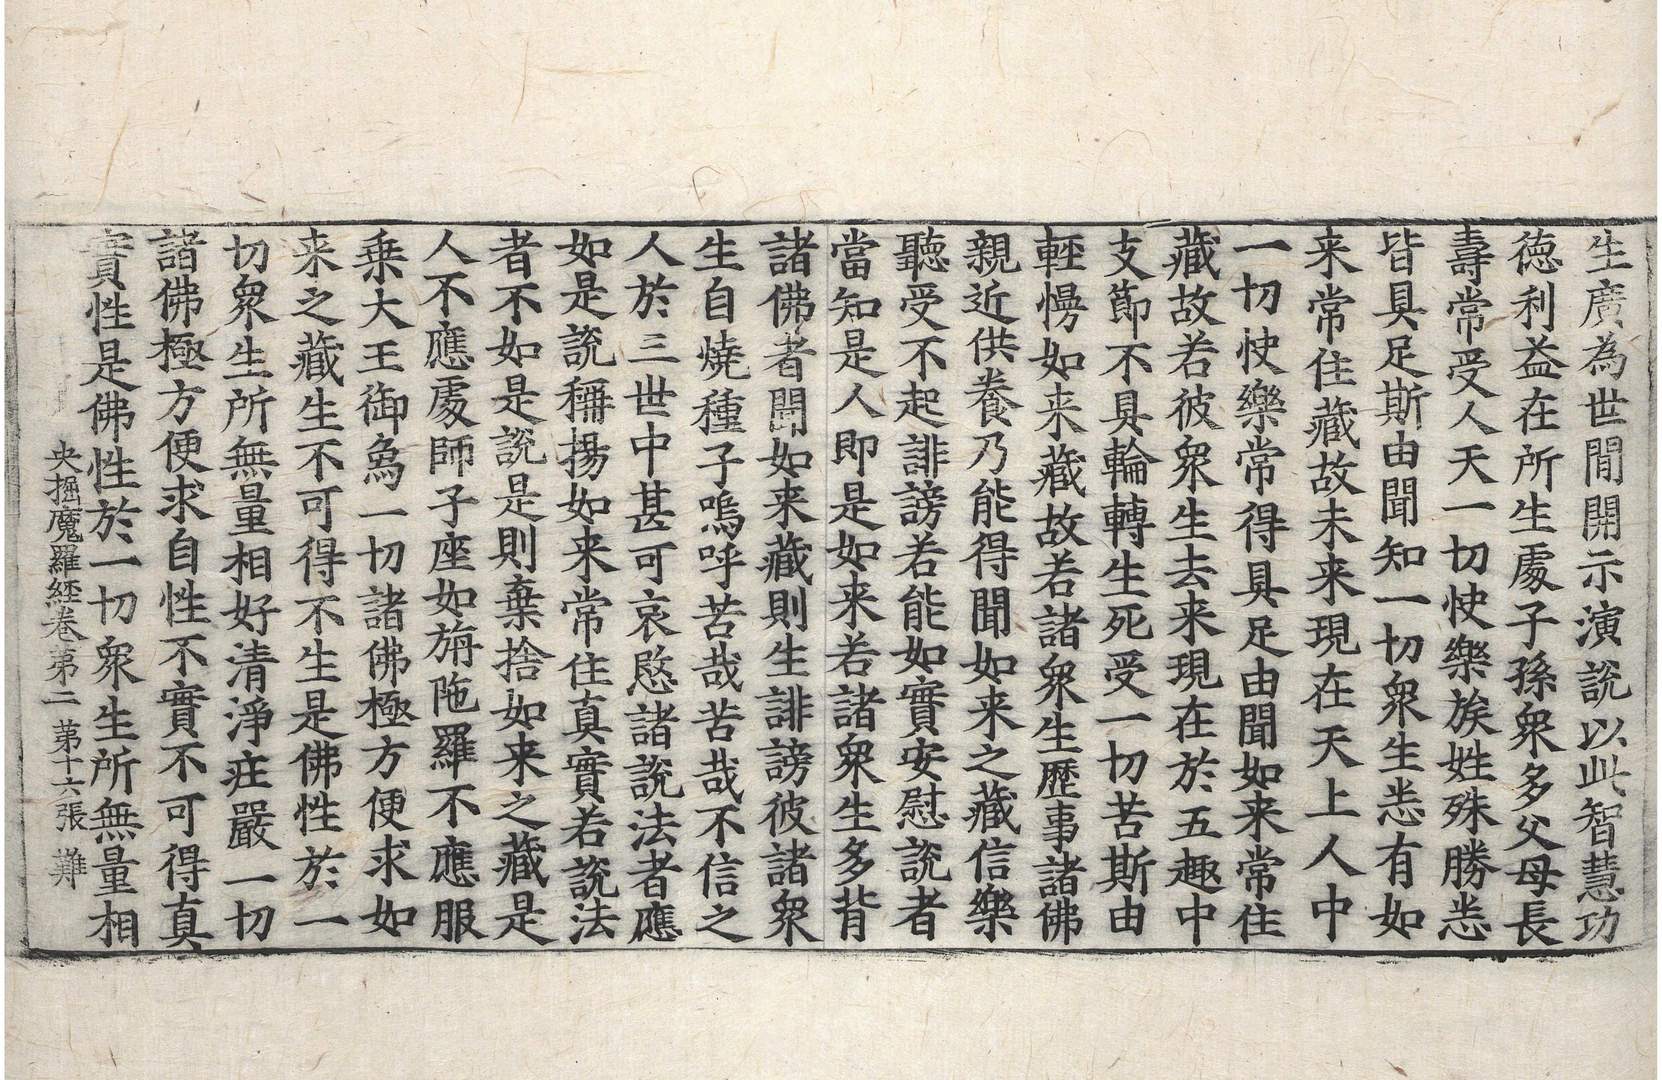 生廣為世間開示演說以此智慧功
德利益在所生處子孫衆多父母長
壽常受人天一切快樂族姓殊勝悉
皆具足斯由聞知一切衆生悉有如
来常住藏故未来現在天上人中
一切快樂常得具足由聞如来常住
藏故若彼衆生去来現在於五趣中
支節不具輪轉生死受一切苦斯由
輕慢如来藏故若諸衆生歷事諸佛
親近供養乃能得聞如来之藏信樂
聽受不起誹謗若能如實安慰說者
當知是人即是如来若諸衆生多背
諸佛者聞如来藏則生誹謗彼諸衆
生自燒種子嗚呼苦哉苦哉不信之
人於三世中甚可哀愍諸說法者應
如是說稱揚如来常住真實若說法
者不如是說是則棄捨如来之藏是
人不應處師子座如旃陁羅不應服
乗大王御象一切諸佛極方便求如
来之藏生不可得不生是佛性於一
切衆生所無量相好清淨莊嚴一切
諸佛極方便求自性不實不可得真
實性是佛性於一切衆生所無量相
央掘魔羅経卷第二 第十六張 難